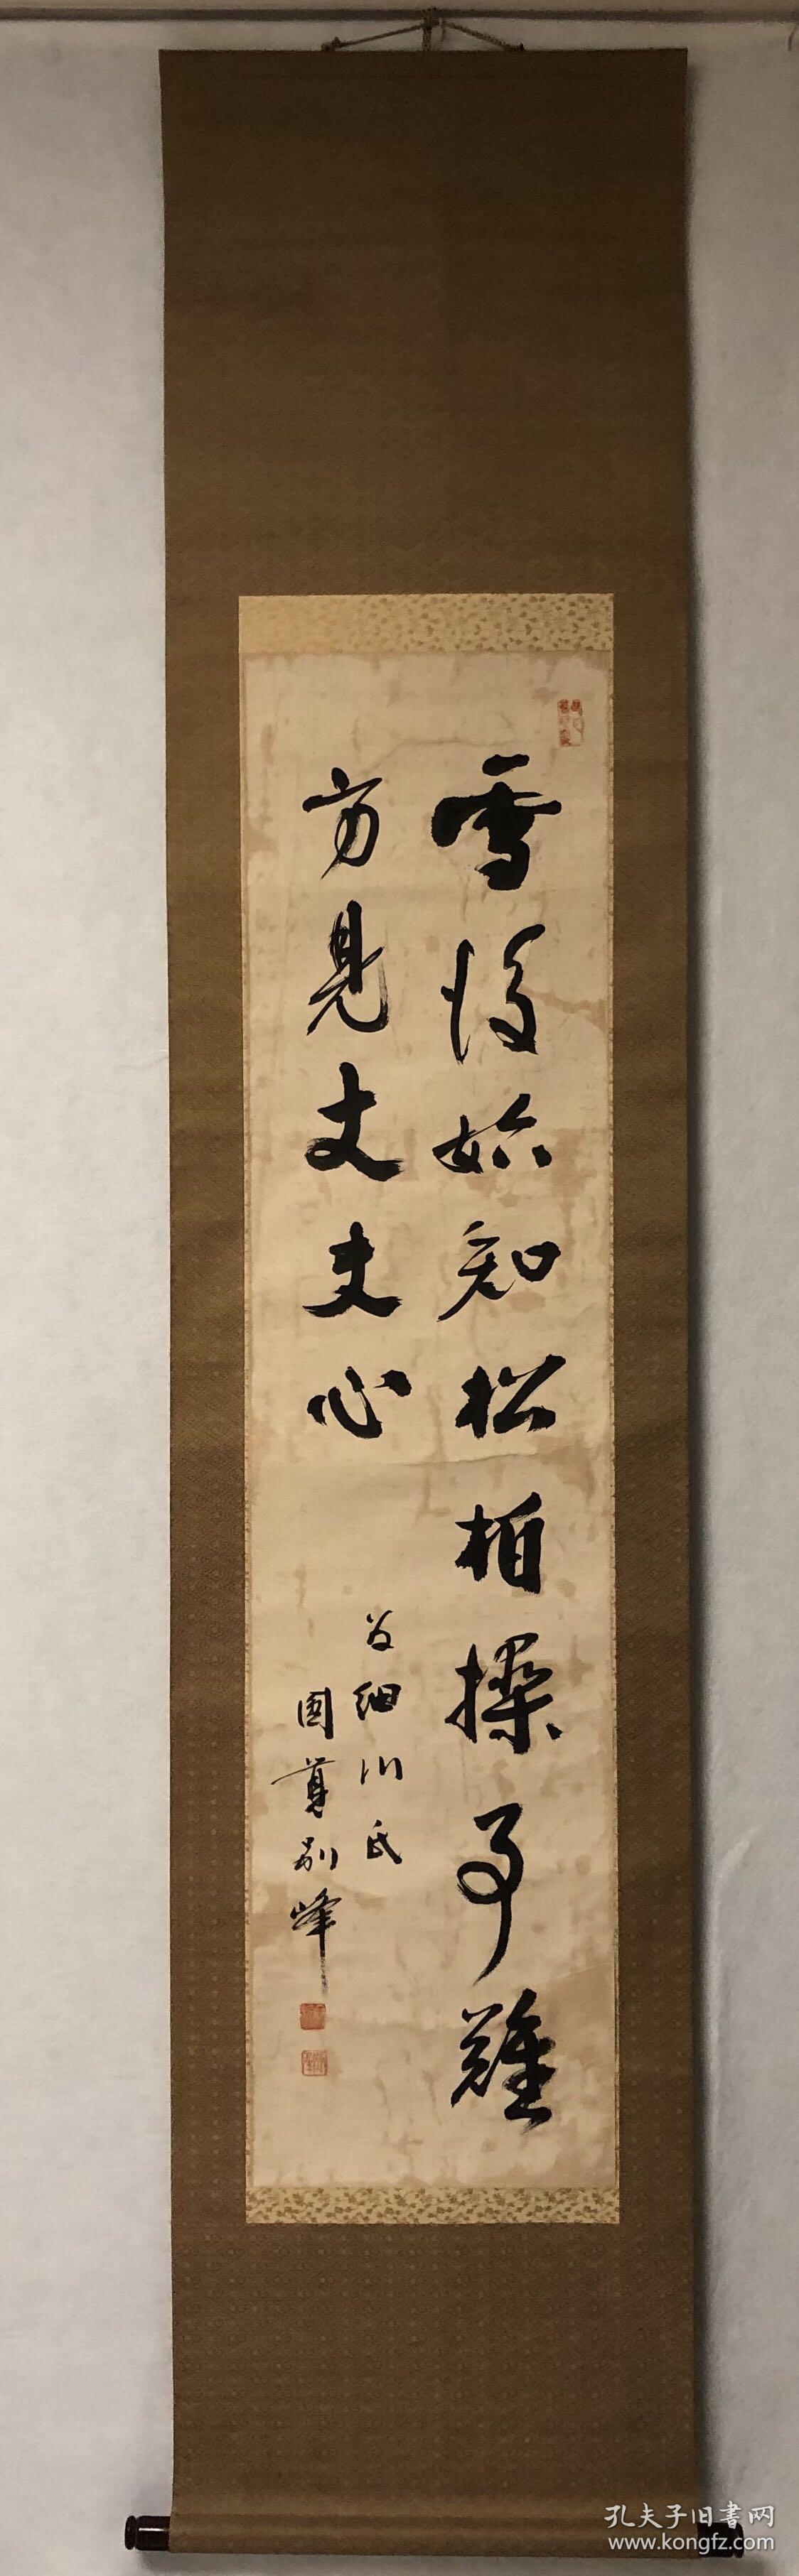 雪後始知松柏操事難
方見丈夫心
為細川氏
圓尊別峰
孔夫子旧書网
www.kongfz.com